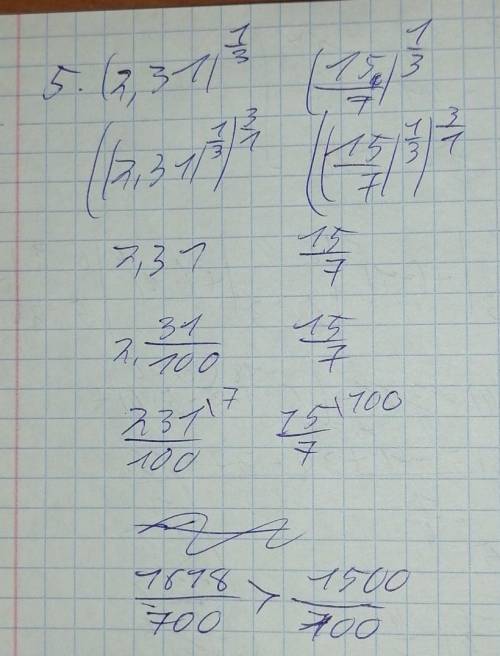 5. (2,31)^(1/3) (15/7)^(1/3)
((2,31)^(1/3))^(3/1) ((15/7)^(1/3))^(3/1)
2,31 15/7
2, 31/100 15/7
231/100 \7 15/7 \100
1618/700 > 1500/700